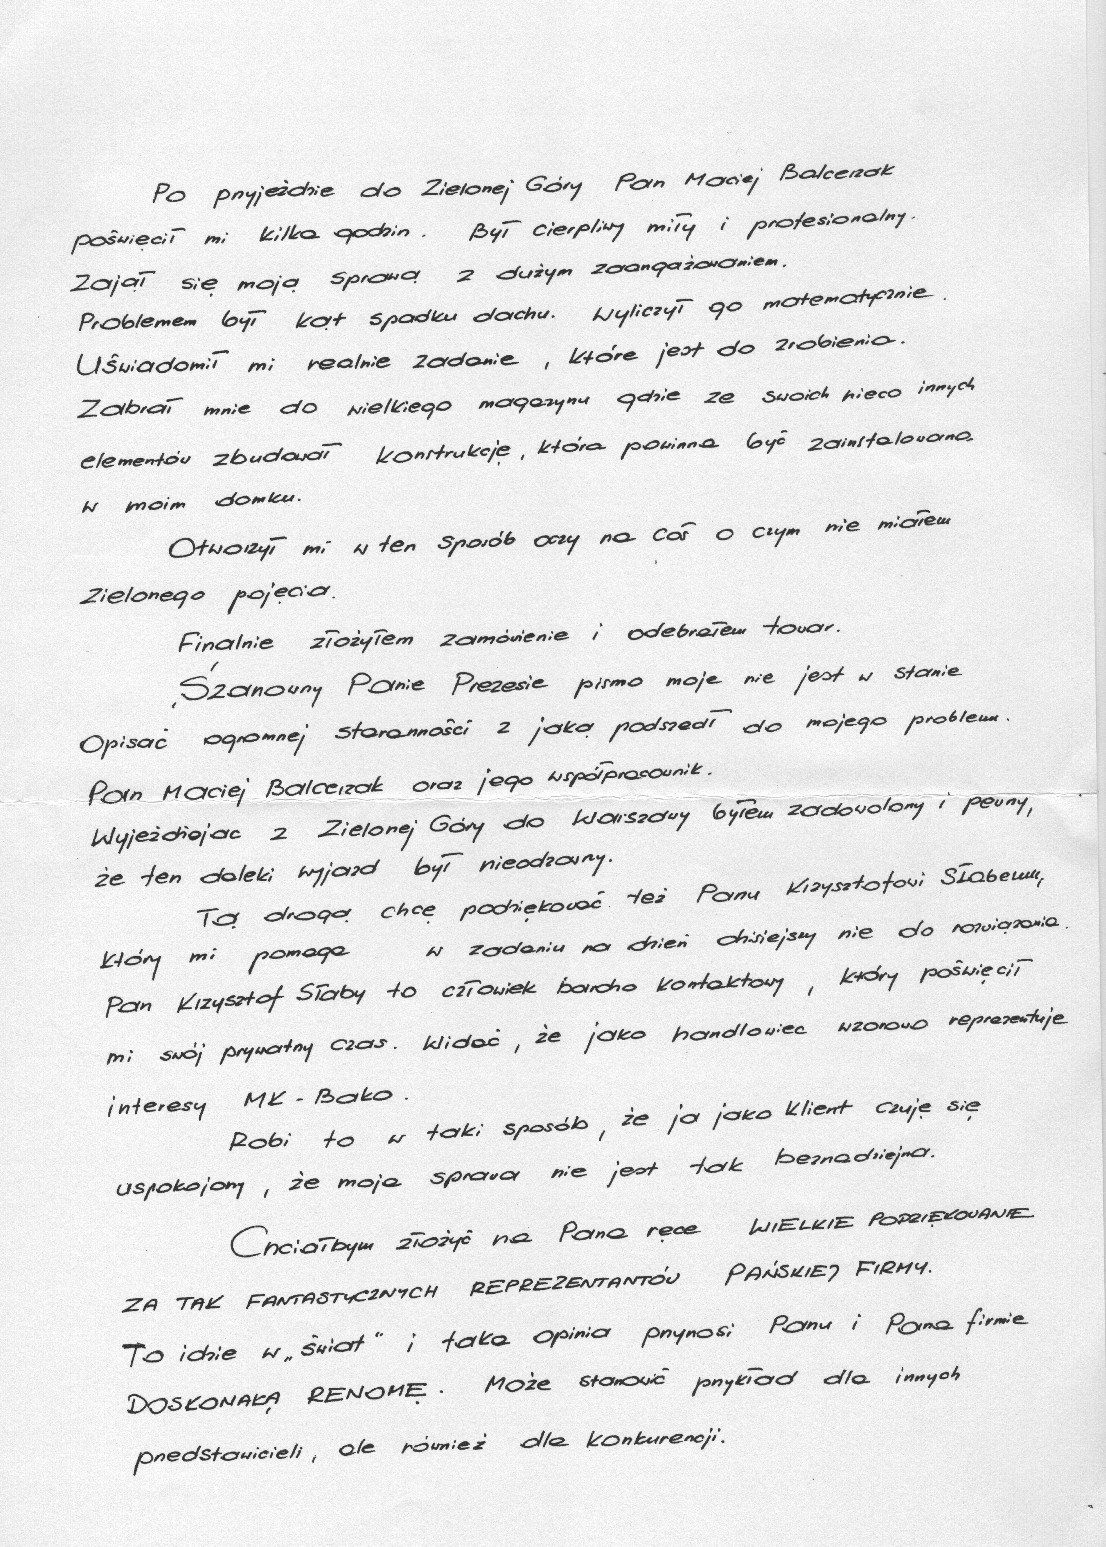 Po przyjeździe do Zielonej Góry Pan Maciej Balcerzak
poświęcił mi kilka godzin. Był cierpliwy miły i profesionalny.
Zajął się moją sprawą z dużym zaangażowaniem.
Problemem był kąt spadku dachu. Wyliczył go matematycznie.
Uświadomił mi realnie zadanie, które jest do zrobienia.
Zabrał mnie do wielkiego magazynu gdzie ze swoich nieco innych
elementów zbudował konstrukcję, która powinna być zainstalowana
w moim domku.
Otworzył mi w ten sposób oczy na coś o czym nie miałem
zielonego pojęcia.
Finalnie złożyłem zamówienie i odebrałem towar.
Szanowny Panie Prezesie pismo moje nie jest w stanie
opisać ogromnej staranności z jaką podszedł do mojego problemu.
Pan Maciej Balcerzak oraz jego współpracownik.
Wyjeżdżając z Zielonej Góry do Warszawy byłem zadowolony i pewny,
że ten daleki wyjazd był nieodzowny.
Tą drogą chcę podziękować też Panu Krzysztofowi Słabemu,
który mi pomaga w zadaniu na dzień dzisiejszy nie do rozwiązania.
Pan Krzysztof Słaby to człowiek bardzo kontaktowy, który poświęcił
mi swój prywatny czas. Widać, że jako handlowiec wzorowo reprezentuje
interesy MK-Bako.
Robi to w taki sposób, że ja jako klient czuję się
uspokojony, że moja sprawa nie jest tak beznadziejna.
Chciałbym złożyć na Pana ręce WIELKIE PODZIĘKOWANIE
ZA TAK FANTASTYCZNYCH REPREZENTANTÓW PAŃSKIEJ FIRMY.
To idzie w „świat" i taka opinia przynosi Panu i Pana firmie
DOSKONAŁĄ RENOMĘ. Może stanowić przykład dla innych
przedstawicieli, ale również dla konkurencji.